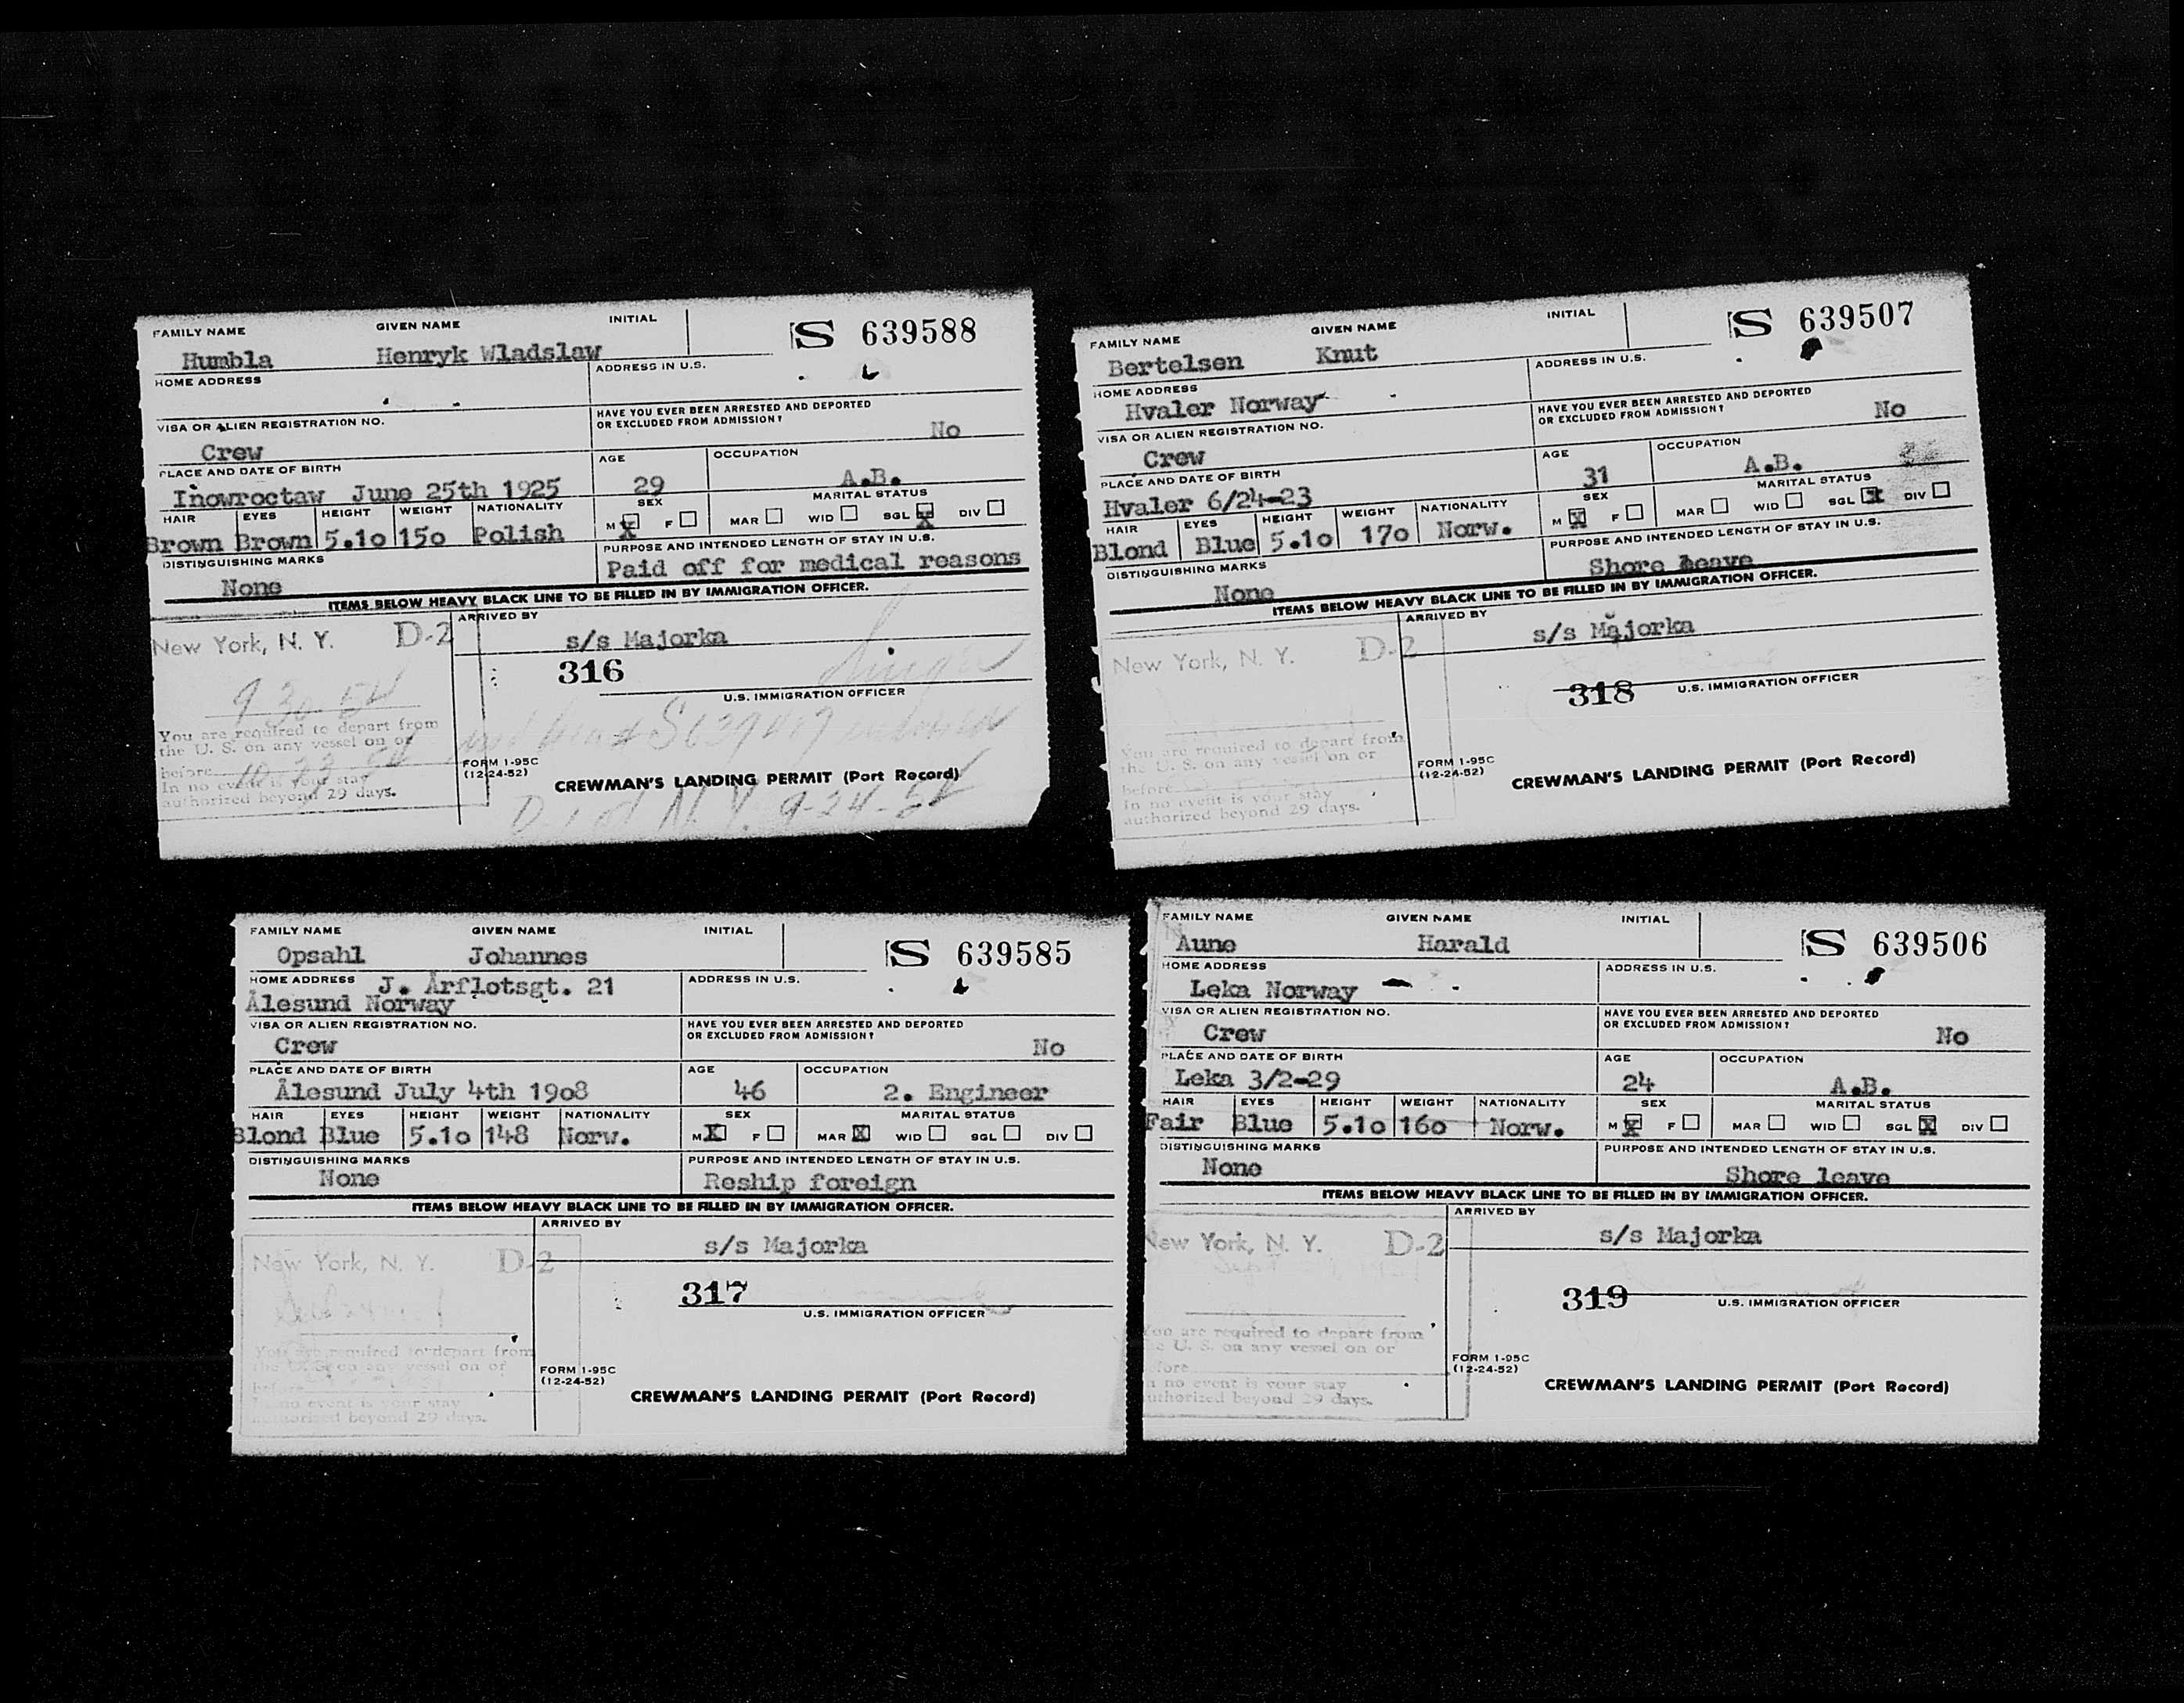 FAMILY NAME GIVEN NAME INITIAL S 639588
Humbla Henryk Wladslaw
HOME ADDRESS ADDRESS IN U.S.
VISA OR ALIEN REGISTRATION NO. HAVE YOU EVER BEEN ARRESTED AND DEPORTED
OR EXCLUDED FROM ADMISSION?
Crew No
PLACE AND DATE OF BIRTH AGE OCCUPATION
Inowroctaw June 25th 1925 29 A.B.
HAIR EYES HEIGHT WEIGHT NATIONALITY SEX MARITAL STATUS
M X F MAR WID SGL X DIV
Brown Brown 5.1o 15o Polish
DISTINGUISHING MARKS PURPOSE AND INTENDED LENGTH OF STAY IN U.S.
None Paid off for medical reasons
ITEMS BELOW HEAVY BLACK LINE TO BE FILLED IN BY IMMIGRATION OFFICER.
ARRIVED BY
New York, N. Y. D-2 s/s Majorka
316
U.S. IMMIGRATION OFFICER
9 30-54
You are required to depart from
the U. S. on any vessel on or
before 10-23-54
In no event is your stay
authorized beyond 29 days.
FORM 1-95C
(12-24-52)
CREWMAN'S LANDING PERMIT (Port Record)
N.Y. 9-24-54
FAMILY NAME GIVEN NAME INITIAL S 639507
Bertelsen Knut
HOME ADDRESS ADDRESS IN U.S.
Hvaler Norway
VISA OR ALIEN REGISTRATION NO. HAVE YOU EVER BEEN ARRESTED AND DEPORTED
OR EXCLUDED FROM ADMISSION?
Crew No
PLACE AND DATE OF BIRTH AGE OCCUPATION
Hvaler 6/24-23 31 A.B.
HAIR EYES HEIGHT WEIGHT NATIONALITY SEX MARITAL STATUS
M X F MAR WID SGL X DIV
Blond Blue 5.1o 17o Norw.
DISTINGUISHING MARKS PURPOSE AND INTENDED LENGTH OF STAY IN U.S.
None Shore leave
ITEMS BELOW HEAVY BLACK LINE TO BE FILLED IN BY IMMIGRATION OFFICER.
ARRIVED BY
New York, N. Y. D-2 s/s Majorka
318
U.S. IMMIGRATION OFFICER
You are required to depart from
the U. S. on any vessel on or
before
In no event is your stay
authorized beyond 29 days.
FORM 1-95C
(12-24-52)
CREWMAN'S LANDING PERMIT (Port Record)
FAMILY NAME GIVEN NAME INITIAL S 639585
Opsahl Johannes
HOME ADDRESS J. Årflotsgt. 21 ADDRESS IN U.S.
Ålesund Norway
VISA OR ALIEN REGISTRATION NO. HAVE YOU EVER BEEN ARRESTED AND DEPORTED
OR EXCLUDED FROM ADMISSION?
Crew No
PLACE AND DATE OF BIRTH AGE OCCUPATION
Ålesund July 4th 19o8 46 2. Engineer
HAIR EYES HEIGHT WEIGHT NATIONALITY SEX MARITAL STATUS
Blond Blue 5.1o 148 Norw. M X F MAR X WID SGL DIV
DISTINGUISHING MARKS PURPOSE AND INTENDED LENGTH OF STAY IN U.S.
None Reship foreign
ITEMS BELOW HEAVY BLACK LINE TO BE FILLED IN BY IMMIGRATION OFFICER.
ARRIVED BY
New York, N. Y. D-2 s/s Majorka
317
U.S. IMMIGRATION OFFICER
You are required to depart from
the U. S. on any vessel on or
before
In no event is your stay
authorized beyond 29 days.
FORM 1-95C
(12-24-52)
CREWMAN'S LANDING PERMIT (Port Record)
FAMILY NAME GIVEN NAME INITIAL S 639506
Aune Harald
HOME ADDRESS ADDRESS IN U.S.
Leka Norway
VISA OR ALIEN REGISTRATION NO. HAVE YOU EVER BEEN ARRESTED AND DEPORTED
OR EXCLUDED FROM ADMISSION?
Crew No
PLACE AND DATE OF BIRTH AGE OCCUPATION
Leka 3/2-29 24 A.B.
HAIR EYES HEIGHT WEIGHT NATIONALITY SEX MARITAL STATUS
Fair Blue 5.1o 16o Norw. M X F MAR WID SGL X DIV
DISTINGUISHING MARKS PURPOSE AND INTENDED LENGTH OF STAY IN U.S.
None Shore leave
ITEMS BELOW HEAVY BLACK LINE TO BE FILLED IN BY IMMIGRATION OFFICER.
ARRIVED BY
New York, N. Y. D-2 s/s Majorka
319
U.S. IMMIGRATION OFFICER
You are required to depart from
the U. S. on any vessel on or
before
In no event is your stay
authorized beyond 29 days.
FORM 1-95C
(12-24-52)
CREWMAN'S LANDING PERMIT (Port Record)